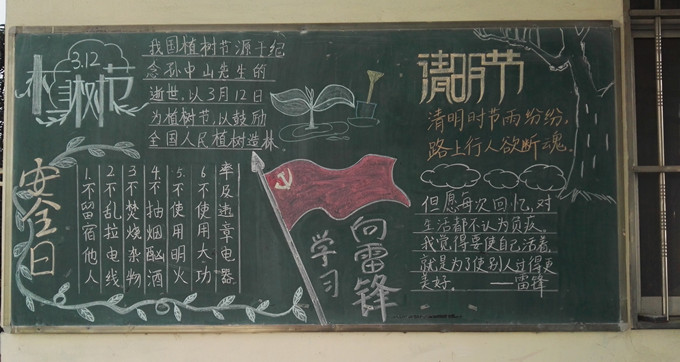 3.12
植树节
我国植树节源于纪
念孙中山先生的
逝世,以3月12日
为植树节,以鼓励
全国人民植树造林.
安全日
1.不留宿他人
2.不乱拉电线
3.不焚烧杂物
4.不抽烟酗酒
5.不使用明火
6.不使用大功
率及违章电器
向雷锋
学习
清明节
清明时节雨纷纷,
路上行人欲断魂.
但愿每次回忆,对
生活都不认为负疚.
我觉得要使自己活着,
就是为了使别人过得更
美好。——雷锋